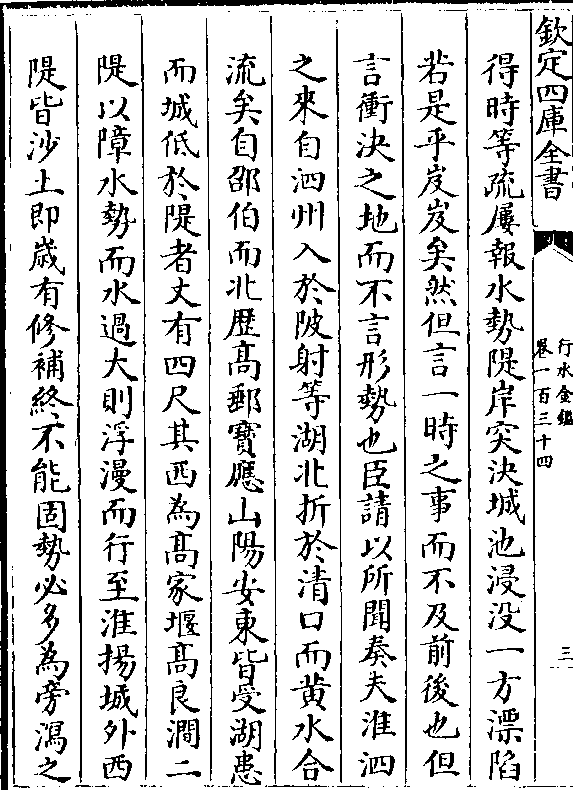 欽定四庫全書
行水金鑑
卷一百三十四
三
得時等疏屢報水勢隄岸突決城池浸没一方漂陷
若是乎岌岌矣然但言一時之事而不及前後也但
言衝決之地而不言形勢也臣請以所聞奏夫淮泗
之來自泗州入於陂射等湖北折於清口而黄水合
流矣自邵伯而北歴髙郵寳應山陽安東皆受湖患
而城低於隄者丈有四尺其西為髙家堰髙良澗二
隄以障水勢而水過大則浮漫而行至淮揚城外西
隄皆沙土即歲有修補終不能固勢必多為旁瀉之